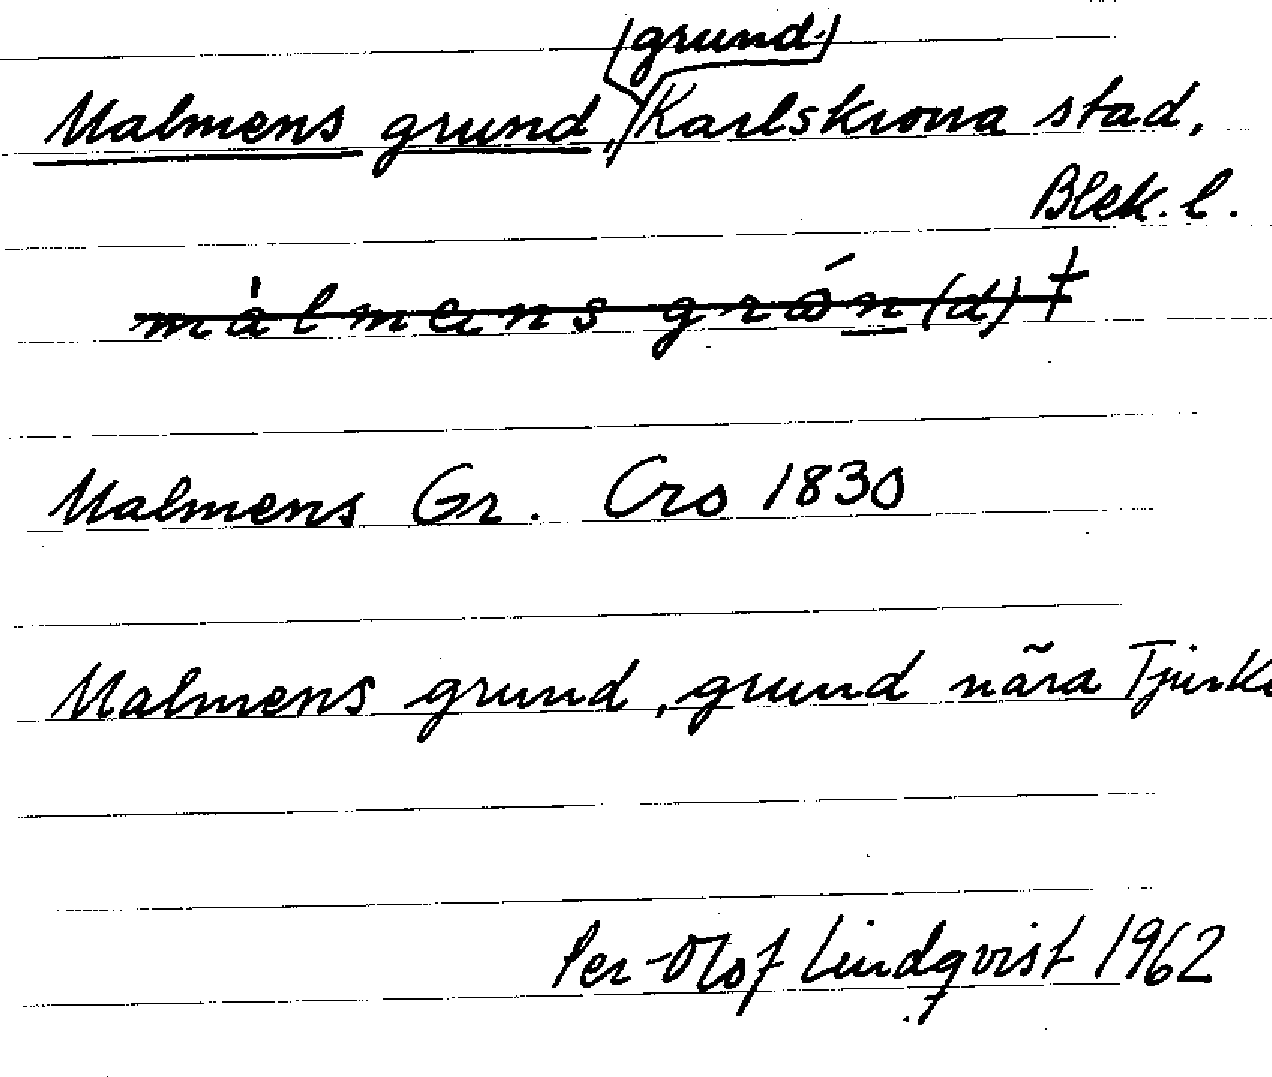 (grund)
Malmens grund, Karlskrona stad,
Blek. l.
màlmens grón(d) †
Malmens Gr. Cro 1830
Malmens grund, grund nära Tjurkö
Per-Olof Lindqvist 1962